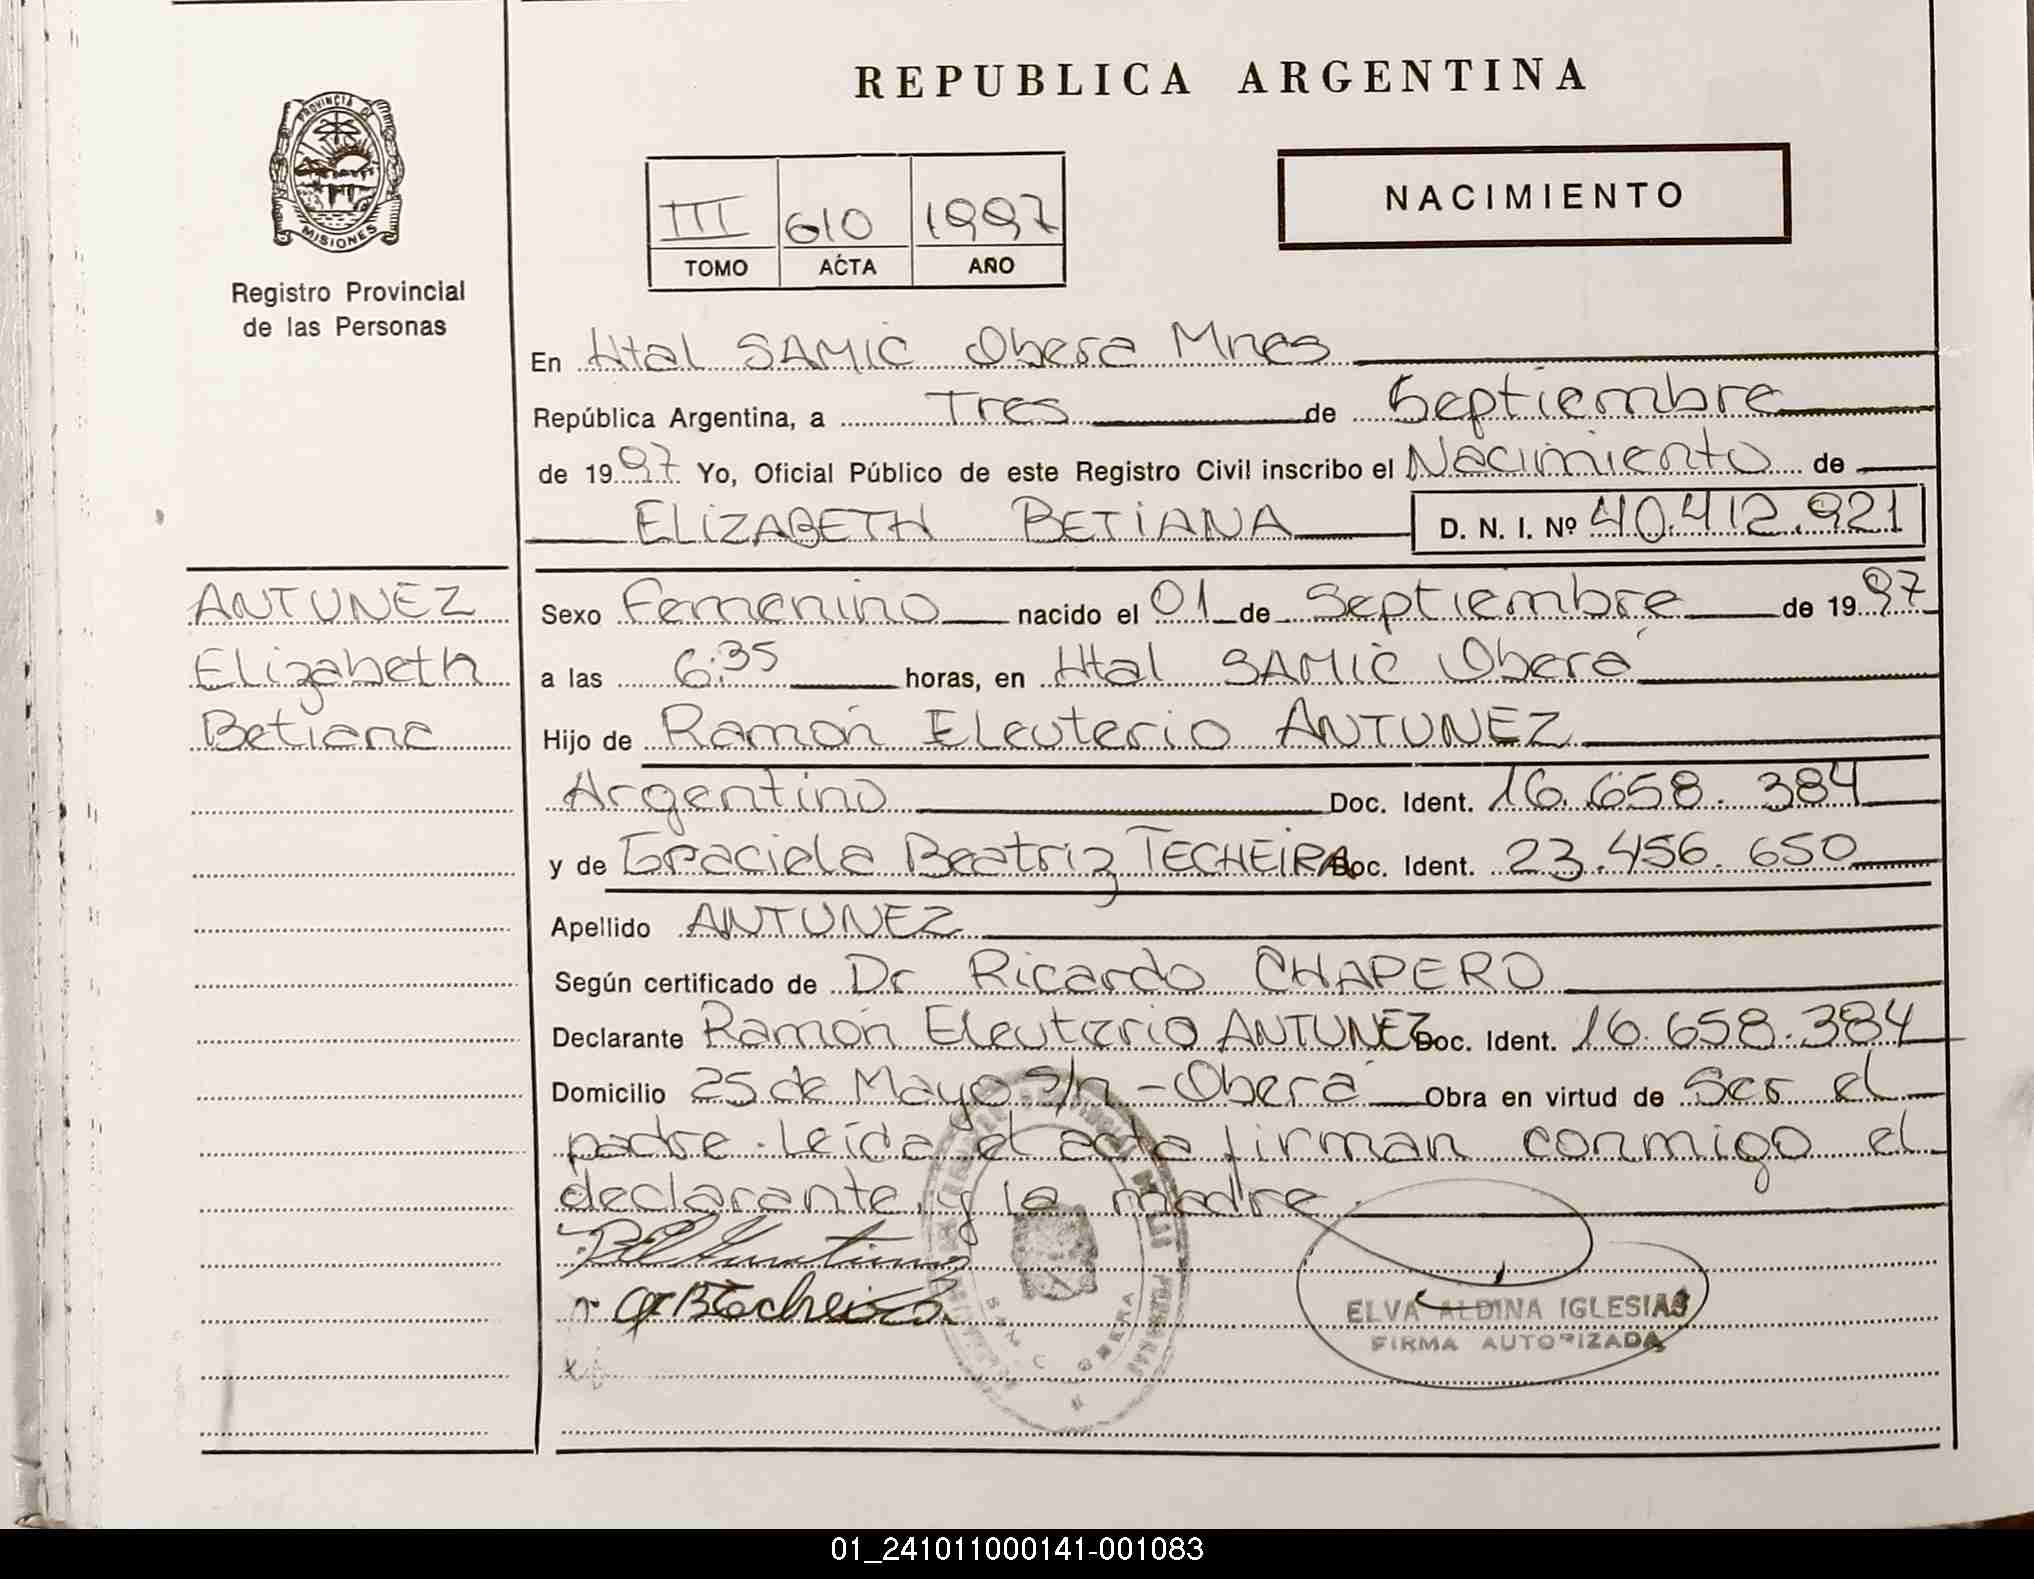 REPUBLICA ARGENTINA
PROVINCIA DE
MISIONES
Registro Provincial
de las Personas
III 610 1997
TOMO ACTA AÑO
NACIMIENTO
En Htal SAMIC Obera Mnes
República Argentina, a Tres de Septiembre
de 1997 Yo, Oficial Público de este Registro Civil inscribo el Nacimiento de
ELIZABETH BETIANA D. N. I. Nº 40.412.921
ANTUNEZ
Elizabeth
Betiana
Sexo Femenino nacido el 01 de Septiembre de 1997
a las 6:35 horas, en Htal SAMIC Oberá
Hijo de Ramón Eleuterio ANTUNEZ
Argentino Doc. Ident. 16.658.384
y de Graciela Beatriz TECHEIRA Doc. Ident. 23.456.650
Apellido ANTUNEZ
Según certificado de Dr Ricardo CHAPERO
Declarante Ramón Eleuterio ANTUNEZ Doc. Ident. 16.658.384
Domicilio 25 de Mayo s/n - Oberá Obra en virtud de Ser el
padre. Leída el acta firman conmigo el
declarante y la madre
ELVA ALDINA IGLESIAS
FIRMA AUTORIZADA
01_241011000141-001083